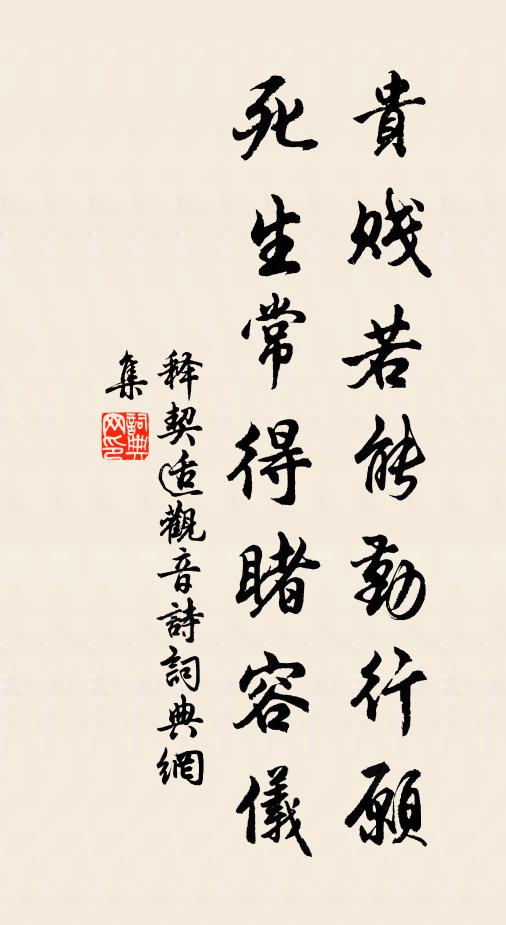 貴賤若能勤行願
死生常得睹容儀
释契适觀音詩詞典網
集
詞典网印